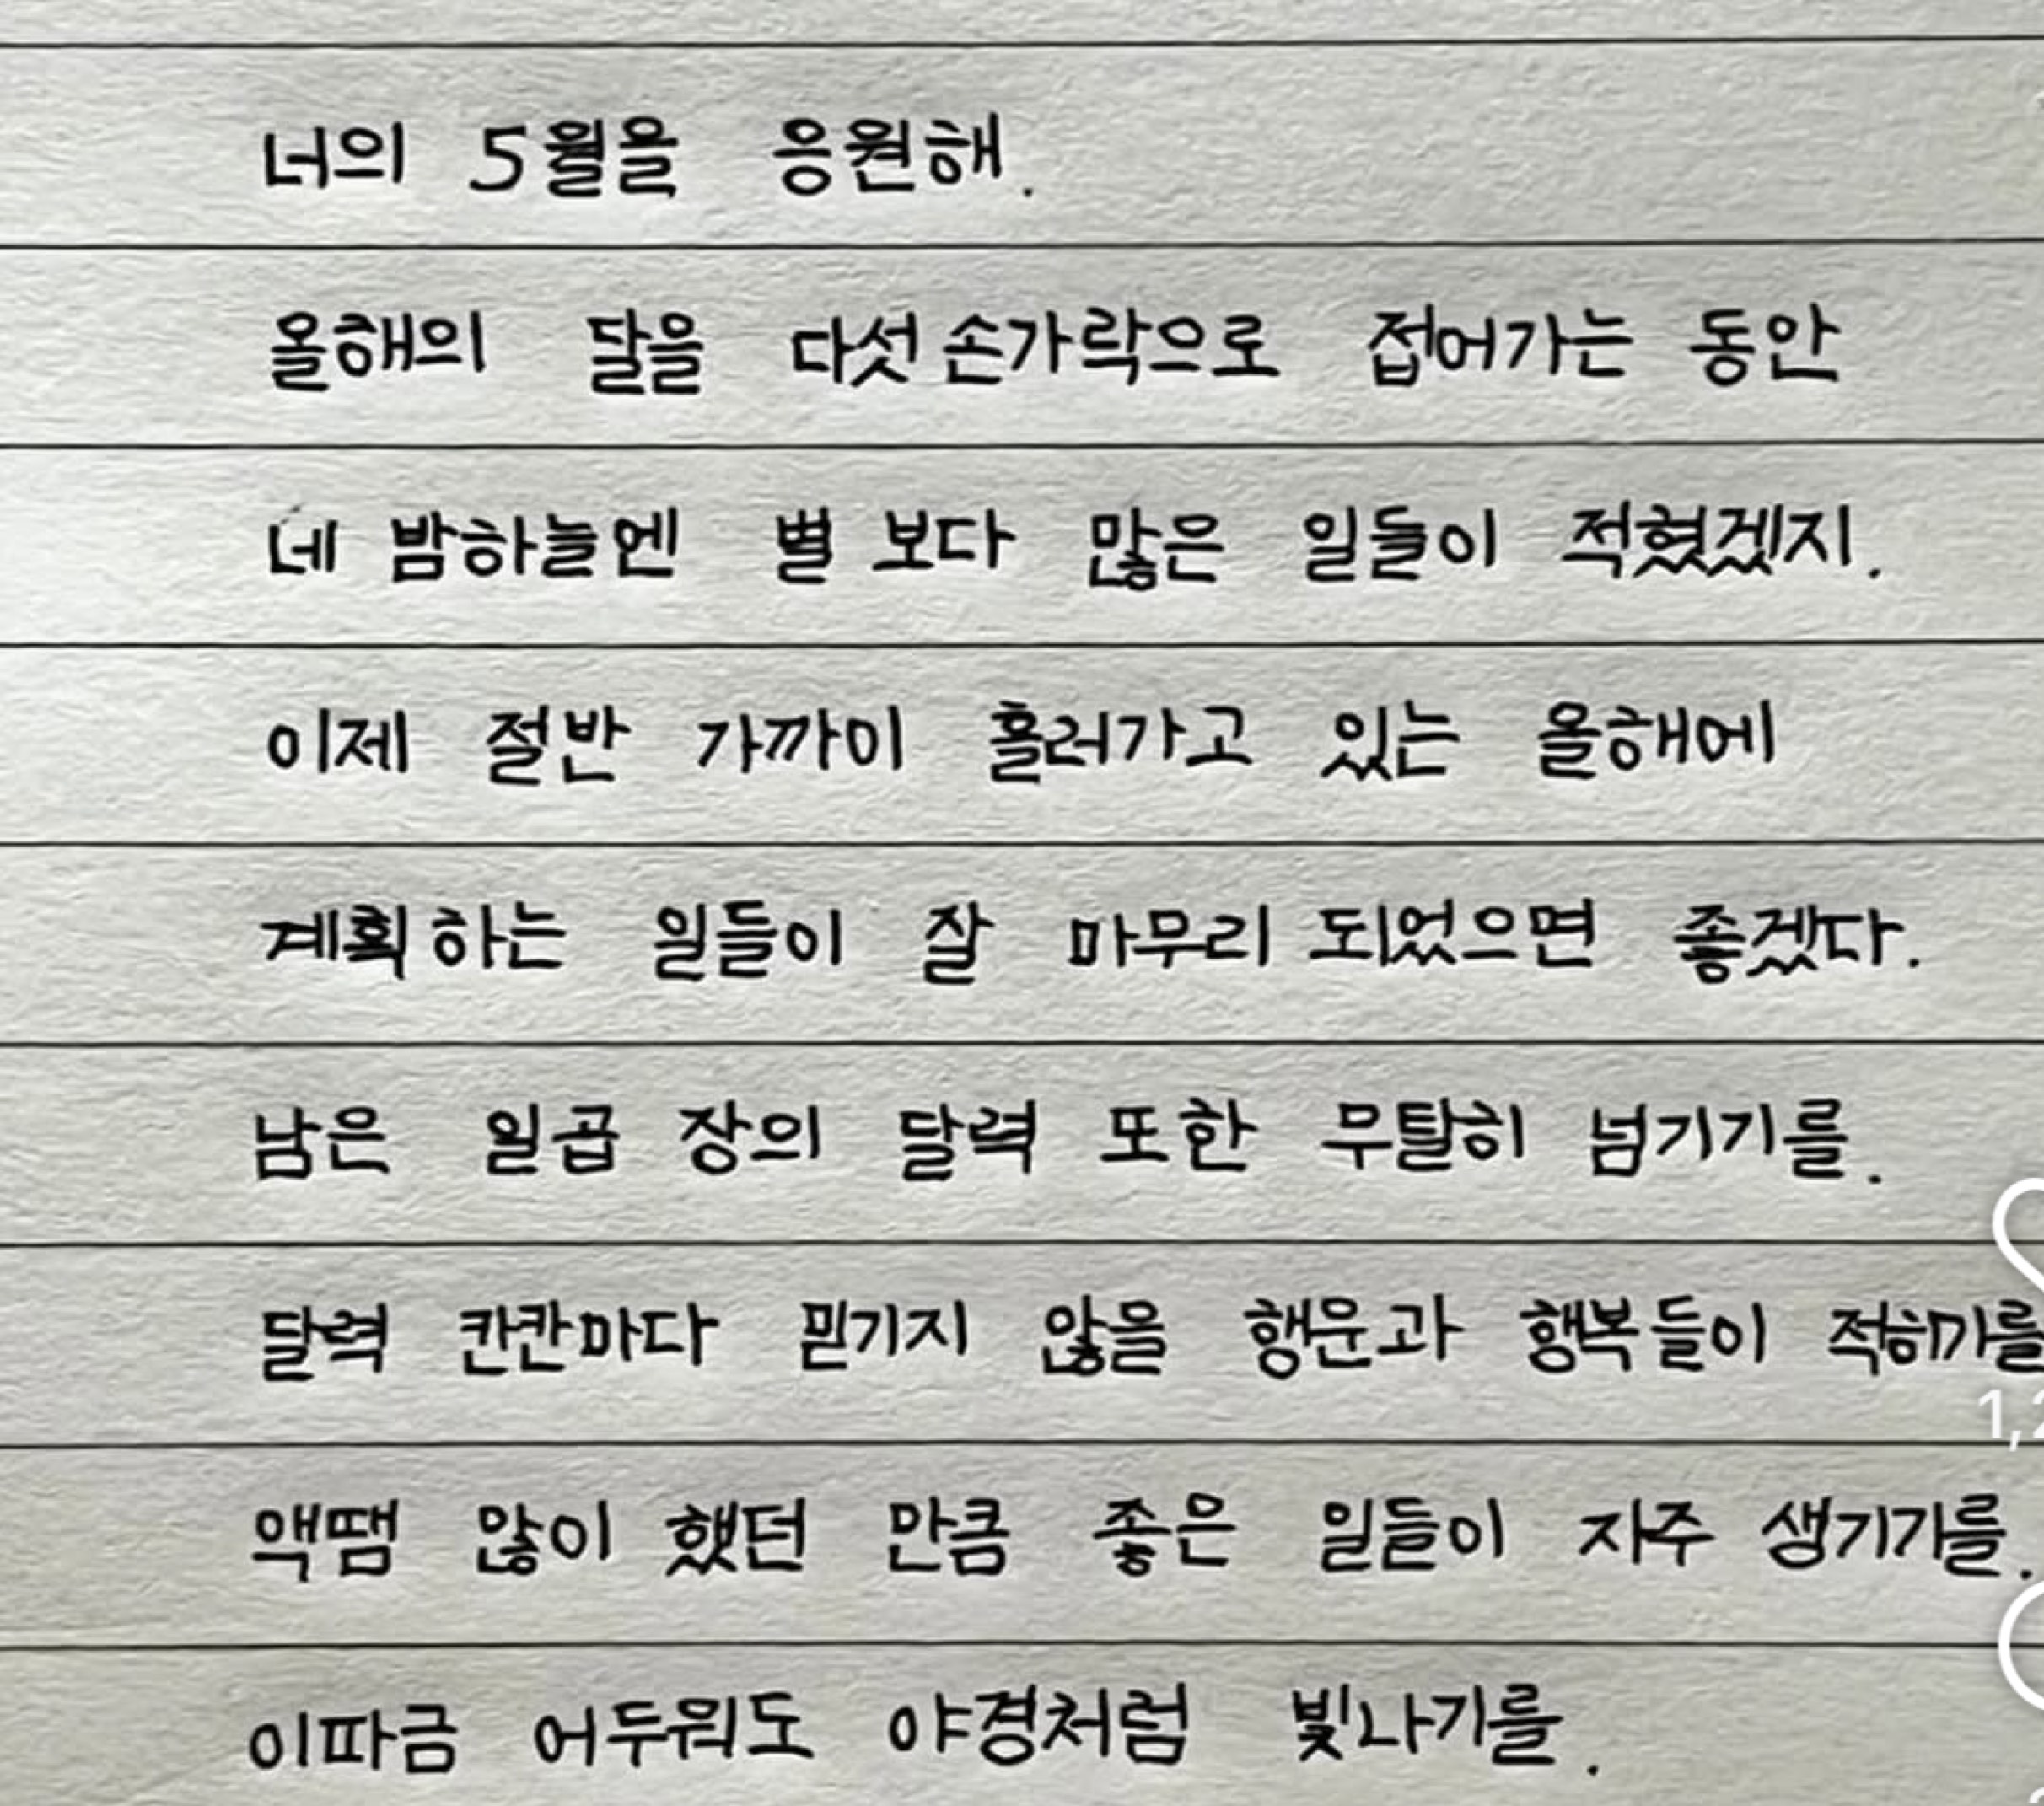 너의 5월을 응원해.
올해의 달을 다섯 손가락으로 접어가는 동안
네 밤하늘엔 별 보다 많은 일들이 적혔겠지.
이제 절반 가까이 흘러가고 있는 올해에
계획하는 일들이 잘 마무리 되었으면 좋겠다.
남은 일곱 장의 달력 또한 무탈히 넘기기를.
달력 칸칸마다 믿기지 않을 행운과 행복들이 적히기를
1,2
액땜 많이 했던 만큼 좋은 일들이 자주 생기기를.
이따금 어두워도 야경처럼 빛나기를.